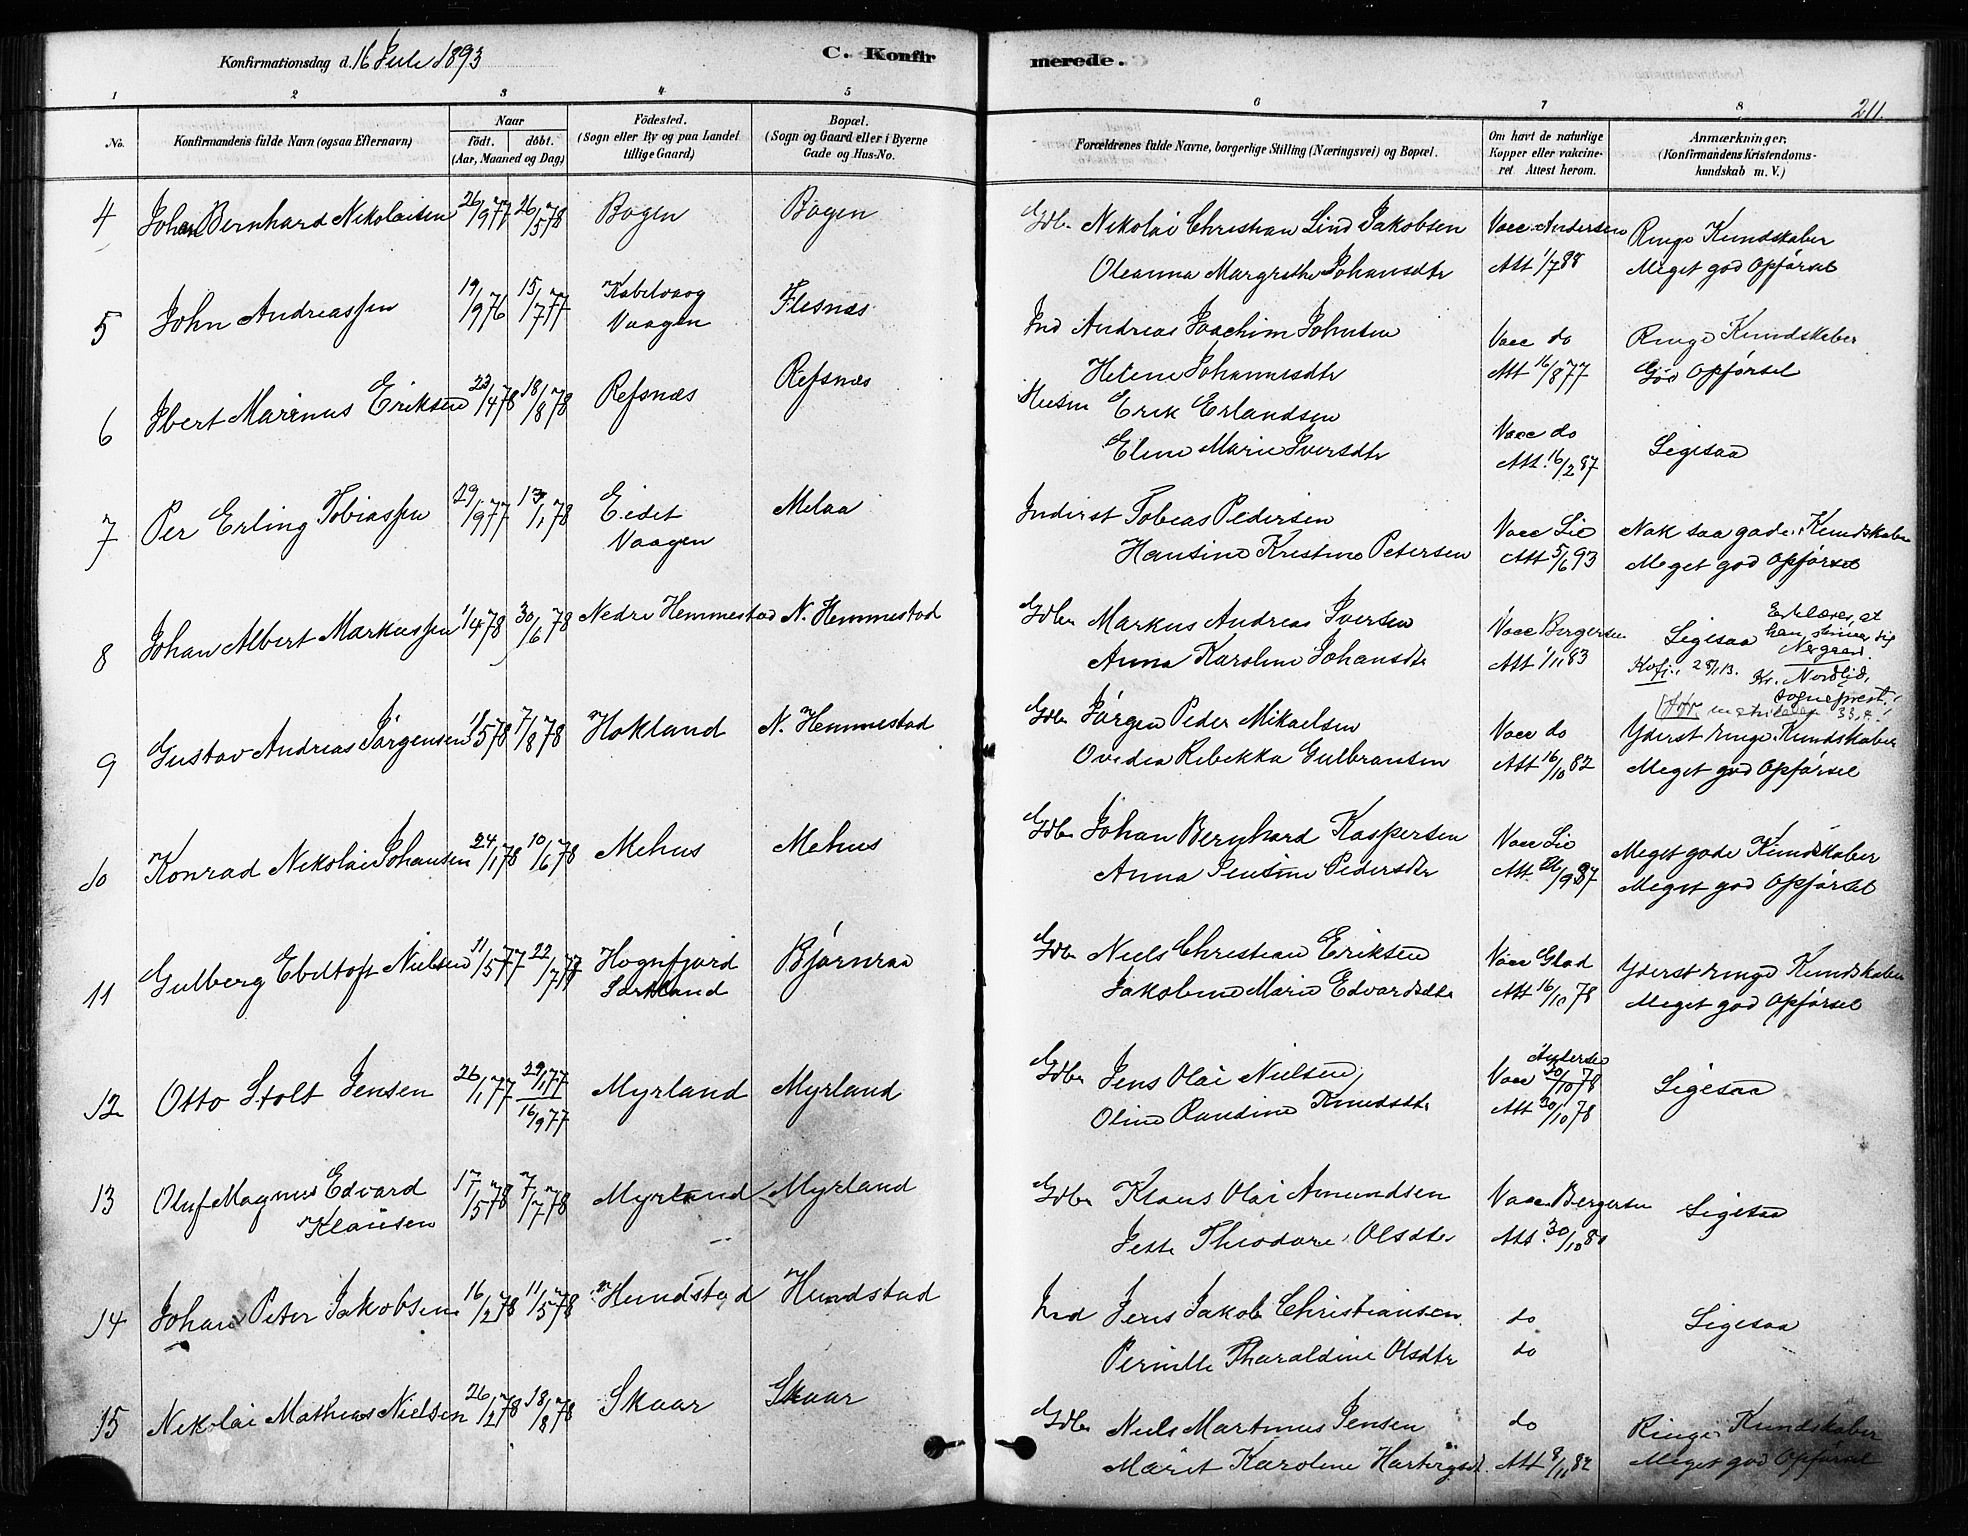 Konfirmationsdag d. 16 Juli 1893
C. Konfirmerede.
211.
1 2 3 4 5 6 7 8
No.
Konfirmandens fulde Navn (ogsaa Efternavn)
Naar
födt. döbt.
(Aar, Maaned og Dag)
Födested.
(Sogn eller By og paa Landet
tillige Gaard)
Bopæl.
(Sogn og Gaard eller i Byerne
Gade og Hus-No.
Forældrenes fulde Navne, borgerlige Stilling (Næringsvei) og Bopæl.
Om havt de naturlige
Kopper eller vakcine-
ret Attest herom.
Anmærkninger.
(Konfirmandens Kristendoms-
kundskab m. V.)
4 Johan Bernhard Nikolaisen 26/9 77 26/5 78 Bogen Bogen Gdbr Nikolai Christian Lind Jakobsen Vacc. Andersen Ringe Kundskaber
Oleanna Margrethe Johansdtr Att 1/7 88 Meget god Opførsel
5 John Andreassen 19/9 76 15/7 77 Kabelvaag Flesnæs Ind Andreas Joachim Johnsen Vacc do Ringe Kundskaber
Vaagen Helene Johannesdtr Att 16/8 77 God Opførsel
6 Ibert Marinus Eriksen 23/4 78 18/8 78 Refsnæs Refsnæs Husm Erik Erlandsen Vacc do Ligesaa
Eline Marie Iversdtr Att. 16/2 87
7 Per Erling Tobiassen 29/9 77 13/1 78 Eidet Melaa Inderst Tobias Pedersen Vacc Lie Nok saa gode Kundskaber
Vaagen Hansine Kristine Petersen Att 5/6 93 Meget god Opførsel
8 Johan Albert Markussen 1/4 78 30/6 78 Nedre Hemmestad N. Hemmestad Gdbr Markus Andreas Iversen Vacc Bergersen Ligesaa
Anna Karoline Johansdtr Att 1/11 83
Erklærer, at
han skriver sig
Nergaard.
Kr. Nordlid,
sogneprest.
9 Gustav Andreas Jørgensen 11/5 78 7/8 78 Hokland N. Hemmestad Gdbr Jørgen Peder Mikaelsen Vacc do Yderst ringe Kundskaber
Ovedia Rebekka Gulbransen Att 16/10 82 Meget god Opførsel
10 Konrad Nikolai Johansen 24/1 78 10/6 78 Mehus Mehus Gdbr Johan Bernhard Kaspersen Vacc Lie Meget gode Kundskaber
Anna Jensine Pedersdtr Att /9 87 Meget god Opførsel
11 Gulberg Ebeltoft Nielsen 11/5 77 22/7 77 Hognfjord Bjørnraa Gdbr Niels Christian Eriksen Vacc Glad Yderst ringe Kundskaber
Sortland Jakobine Marie Edvardsdtr Att 16/10 78 Meget god Opførsel
12 Otto Stolt Jensen 26/1 77 29/1 77 Myrland Myrland Gdbr Jens Olai Nielsen Vacc Andersen 30/10 78 Ligesaa
16/9 77 Oline Randine Knudsdtr Att 30/10 78
13 Oluf Magnus Edvard 17/5 78 7/7 78 Myrland Myrland Gdbr Klaus Olai Amundsen Vacc. Bergersen Ligesaa
Klausen Jette Theodore Olsdtr Att. 30/10 80
14 Johan Peter Jakobsen 16/2 78 11/5 78 Hundstad Hundstad Ind Jens Jakob Christiansen do Ligesaa
Pernille Tharaldine Olsdtr do
15 Nikolai Mathias Nielsen 26/2 78 18/8 78 Skaar Skaar Gdbr Niels Martinus Jensen do Ringe Kundskaber
Marit Karoline Hartvigsdt. Att 9/11 82 Meget god Opførsel